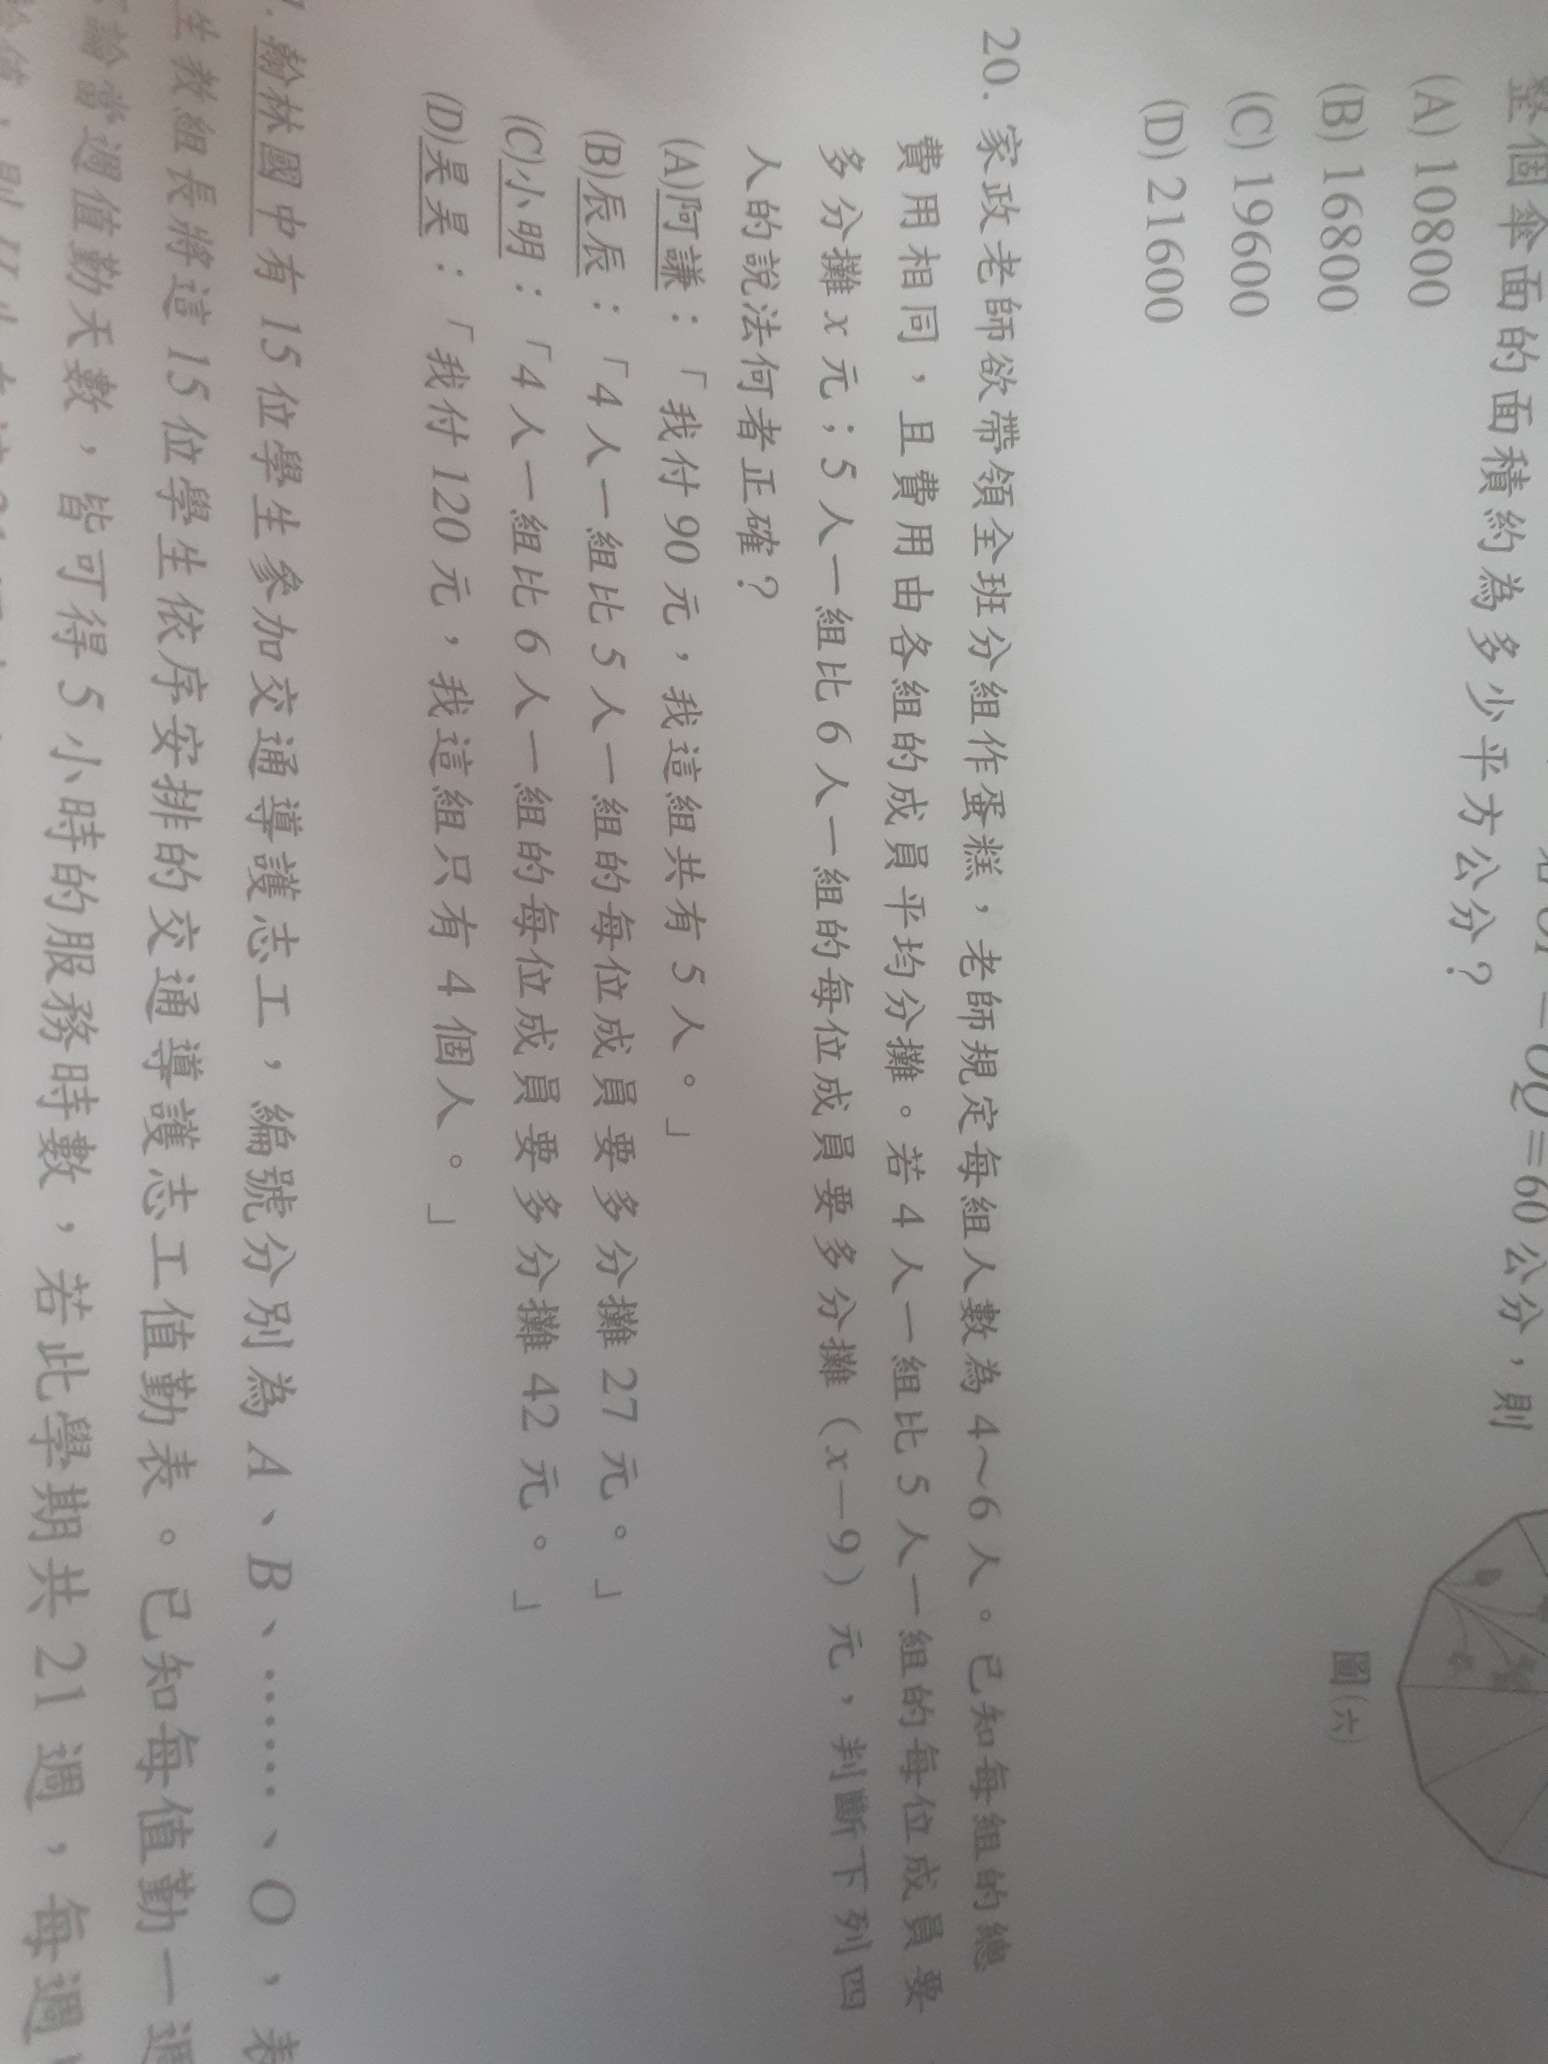 整個傘面的面積約為多少平方公分？
=60公分，則
(A) 10800
(B) 16800
(C) 19600
(D) 21600
圖(六)
20. 家政老師欲帶領全班分組作蛋糕，老師規定每組人數為 4～6 人。已知每組的總
費用相同，且費用由各組的成員平均分攤。若 4 人一組比 5 人一組的每位成員要
多分攤 x 元；5 人一組比 6 人一組的每位成員要多分攤（x－9）元，判斷下列四
人的說法何者正確？
(A)阿謙：「我付 90 元，我這組共有 5 人。」
(B)辰辰：「4 人一組比 5 人一組的每位成員要多分攤 27 元。」
(C)小明：「4 人一組比 6 人一組的每位成員要多分攤 42 元。」
(D)昊昊：「我付 120 元，我這組只有 4 個人。」
翰林國中有 15 位學生參加交通導護志工，編號分別為 A、B、……、O，表
生教組長將這 15 位學生依序安排的交通導護志工值勤表。已知每值勤一週
論當週值勤天數，皆可得 5 小時的服務時數，若此學期共 21 週，每週